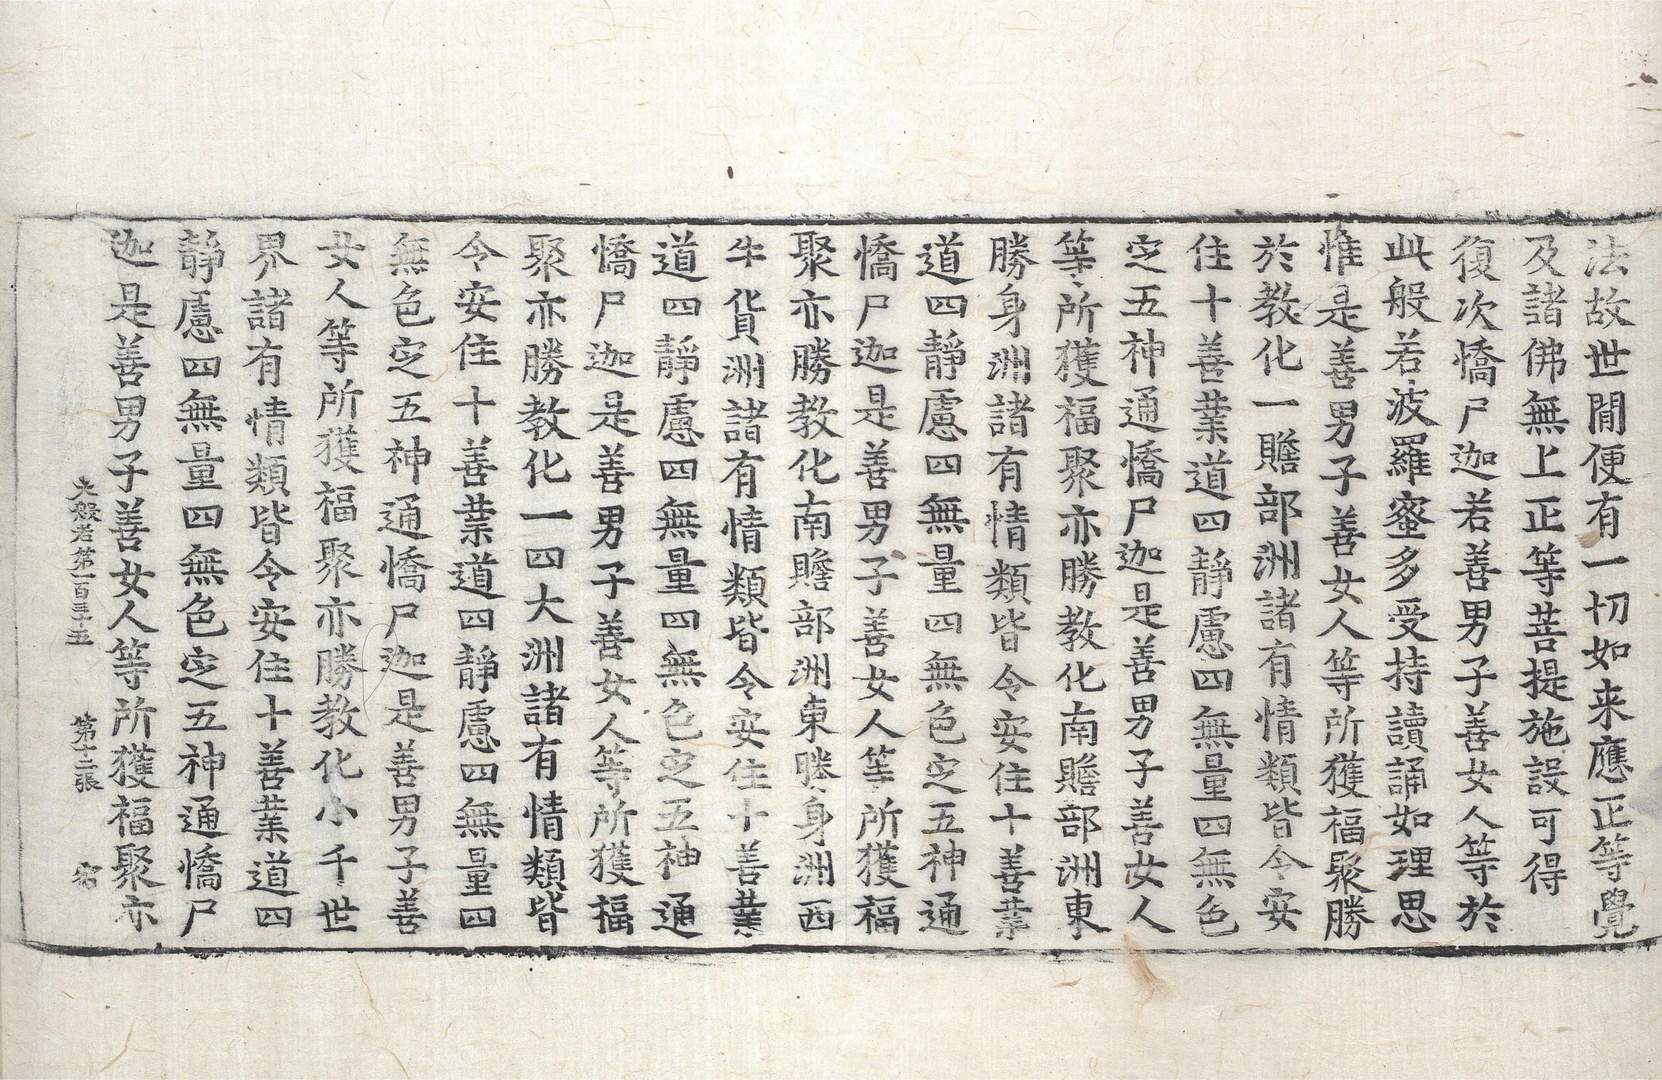 法故世間便有一切如来應正等覺
及諸佛無上正等菩提施設可得
復次憍尸迦若善男子善女人等於
此般若波羅蜜多受持讀誦如理思
惟是善男子善女人等所獲福聚勝
於教化一贍部洲諸有情類皆令安
住十善業道四靜慮四無量四無色
定五神通憍尸迦是善男子善女人
等所獲福聚亦勝教化南贍部洲東
勝身洲諸有情類皆令安住十善業
道四靜慮四無量四無色定五神通
憍尸迦是善男子善女人等所獲福
聚亦勝教化南贍部洲東勝身洲西
牛貨洲諸有情類皆令安住十善業
道四靜慮四無量四無色定五神通
憍尸迦是善男子善女人等所獲福
聚亦勝教化一四大洲諸有情類皆
令安住十善業道四靜慮四無量四
無色定五神通憍尸迦是善男子善
女人等所獲福聚亦勝教化小千世
界諸有情類皆令安住十善業道四
靜慮四無量四無色定五神通憍尸
迦是善男子善女人等所獲福聚亦
大般若第一百三十五 第十二張 宿